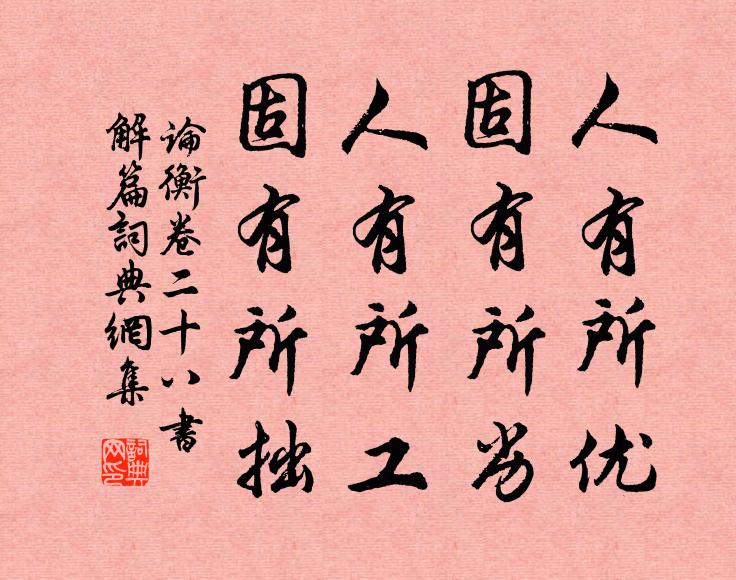 人有所优
固有所劣
人有所工
固有所拙
論衡卷二十八書
解篇詞典網集
詞典
网印